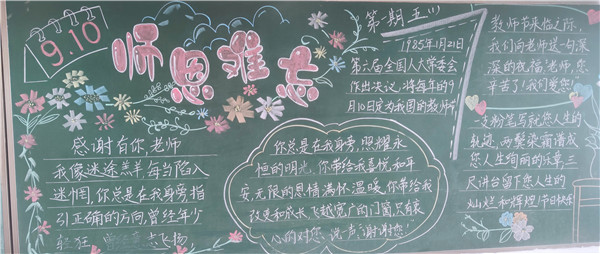 9.10
师恩难忘
第一期 五(1)
1985年1月21日
第六届全国人大常委会
作出决议,将每年的9
月10日定为我国的教师节
教师节来临之际,
我们向老师送一句深
深的祝福,老师,您
辛苦了!我们爱您!
感谢有你,老师
我像迷途羔羊,每当陷入
迷惘,你总是在我身旁,指
引正确的方向,曾经年少
轻狂 意志飞扬,
你总是在我身旁,照耀永
恒的明光,你带给我喜悦和平
安,无限的恩情满怀温暖,你带给我
改变和成长,飞越宽广的门窗,只有衷
心的对您,说一声:谢谢您!
一支粉笔写就您人生的
轨迹,两鬓染霜谱成
您人生绚丽的乐章,三
尺讲台留下您人生的
灿烂和辉煌!节日快乐